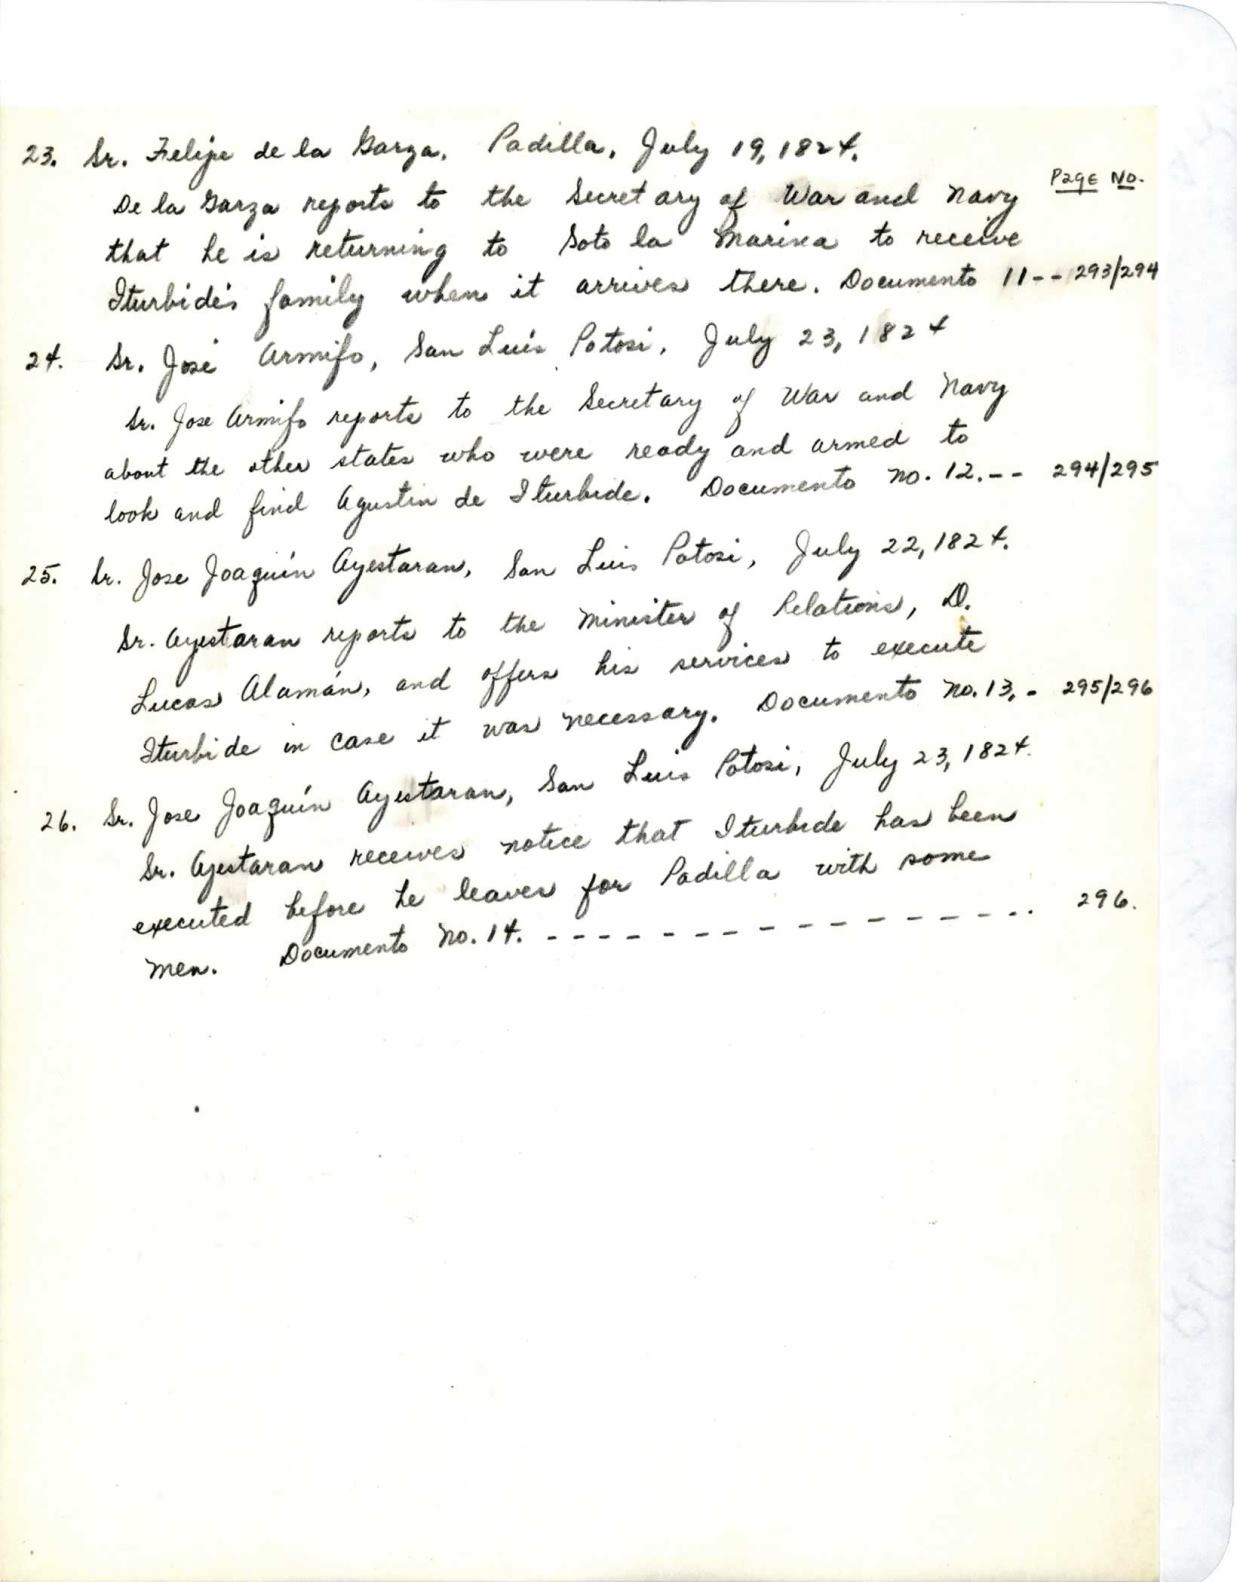 23. Sr. Felipe de la Garza, Padilla, July 19, 1824.
Page No.
De la Garza reports to the Secretary of War and Navy
that he is returning to Soto la Marina to receive
Iturbide's family when it arrives there. Documento 11 -- 293/294
24. Sr. José Armifo, San Luis Potosi, July 23, 1824
Sr. Jose Armifo reports to the Secretary of War and Navy
about the other states who were ready and armed to
look and find Agustin de Iturbide. Documento No. 12. -- 294/295
25. Sr. Jose Joaquín Ayestaran, San Luis Potosi, July 22, 1824.
Sr. Ayestaran reports to the Minister of Relations, D.
Lucas Alamán, and offers his services to execute
Iturbide in case it was necessary. Documento No. 13. - 295/296
26. Sr. Jose Joaquín Ayestaran, San Luis Potosi, July 23, 1824.
Sr. Ayestaran receives notice that Iturbide has been
executed before he leaves for Padilla with some
men. Documento No. 14. - - - - - - - - - - - - - - - - 296.